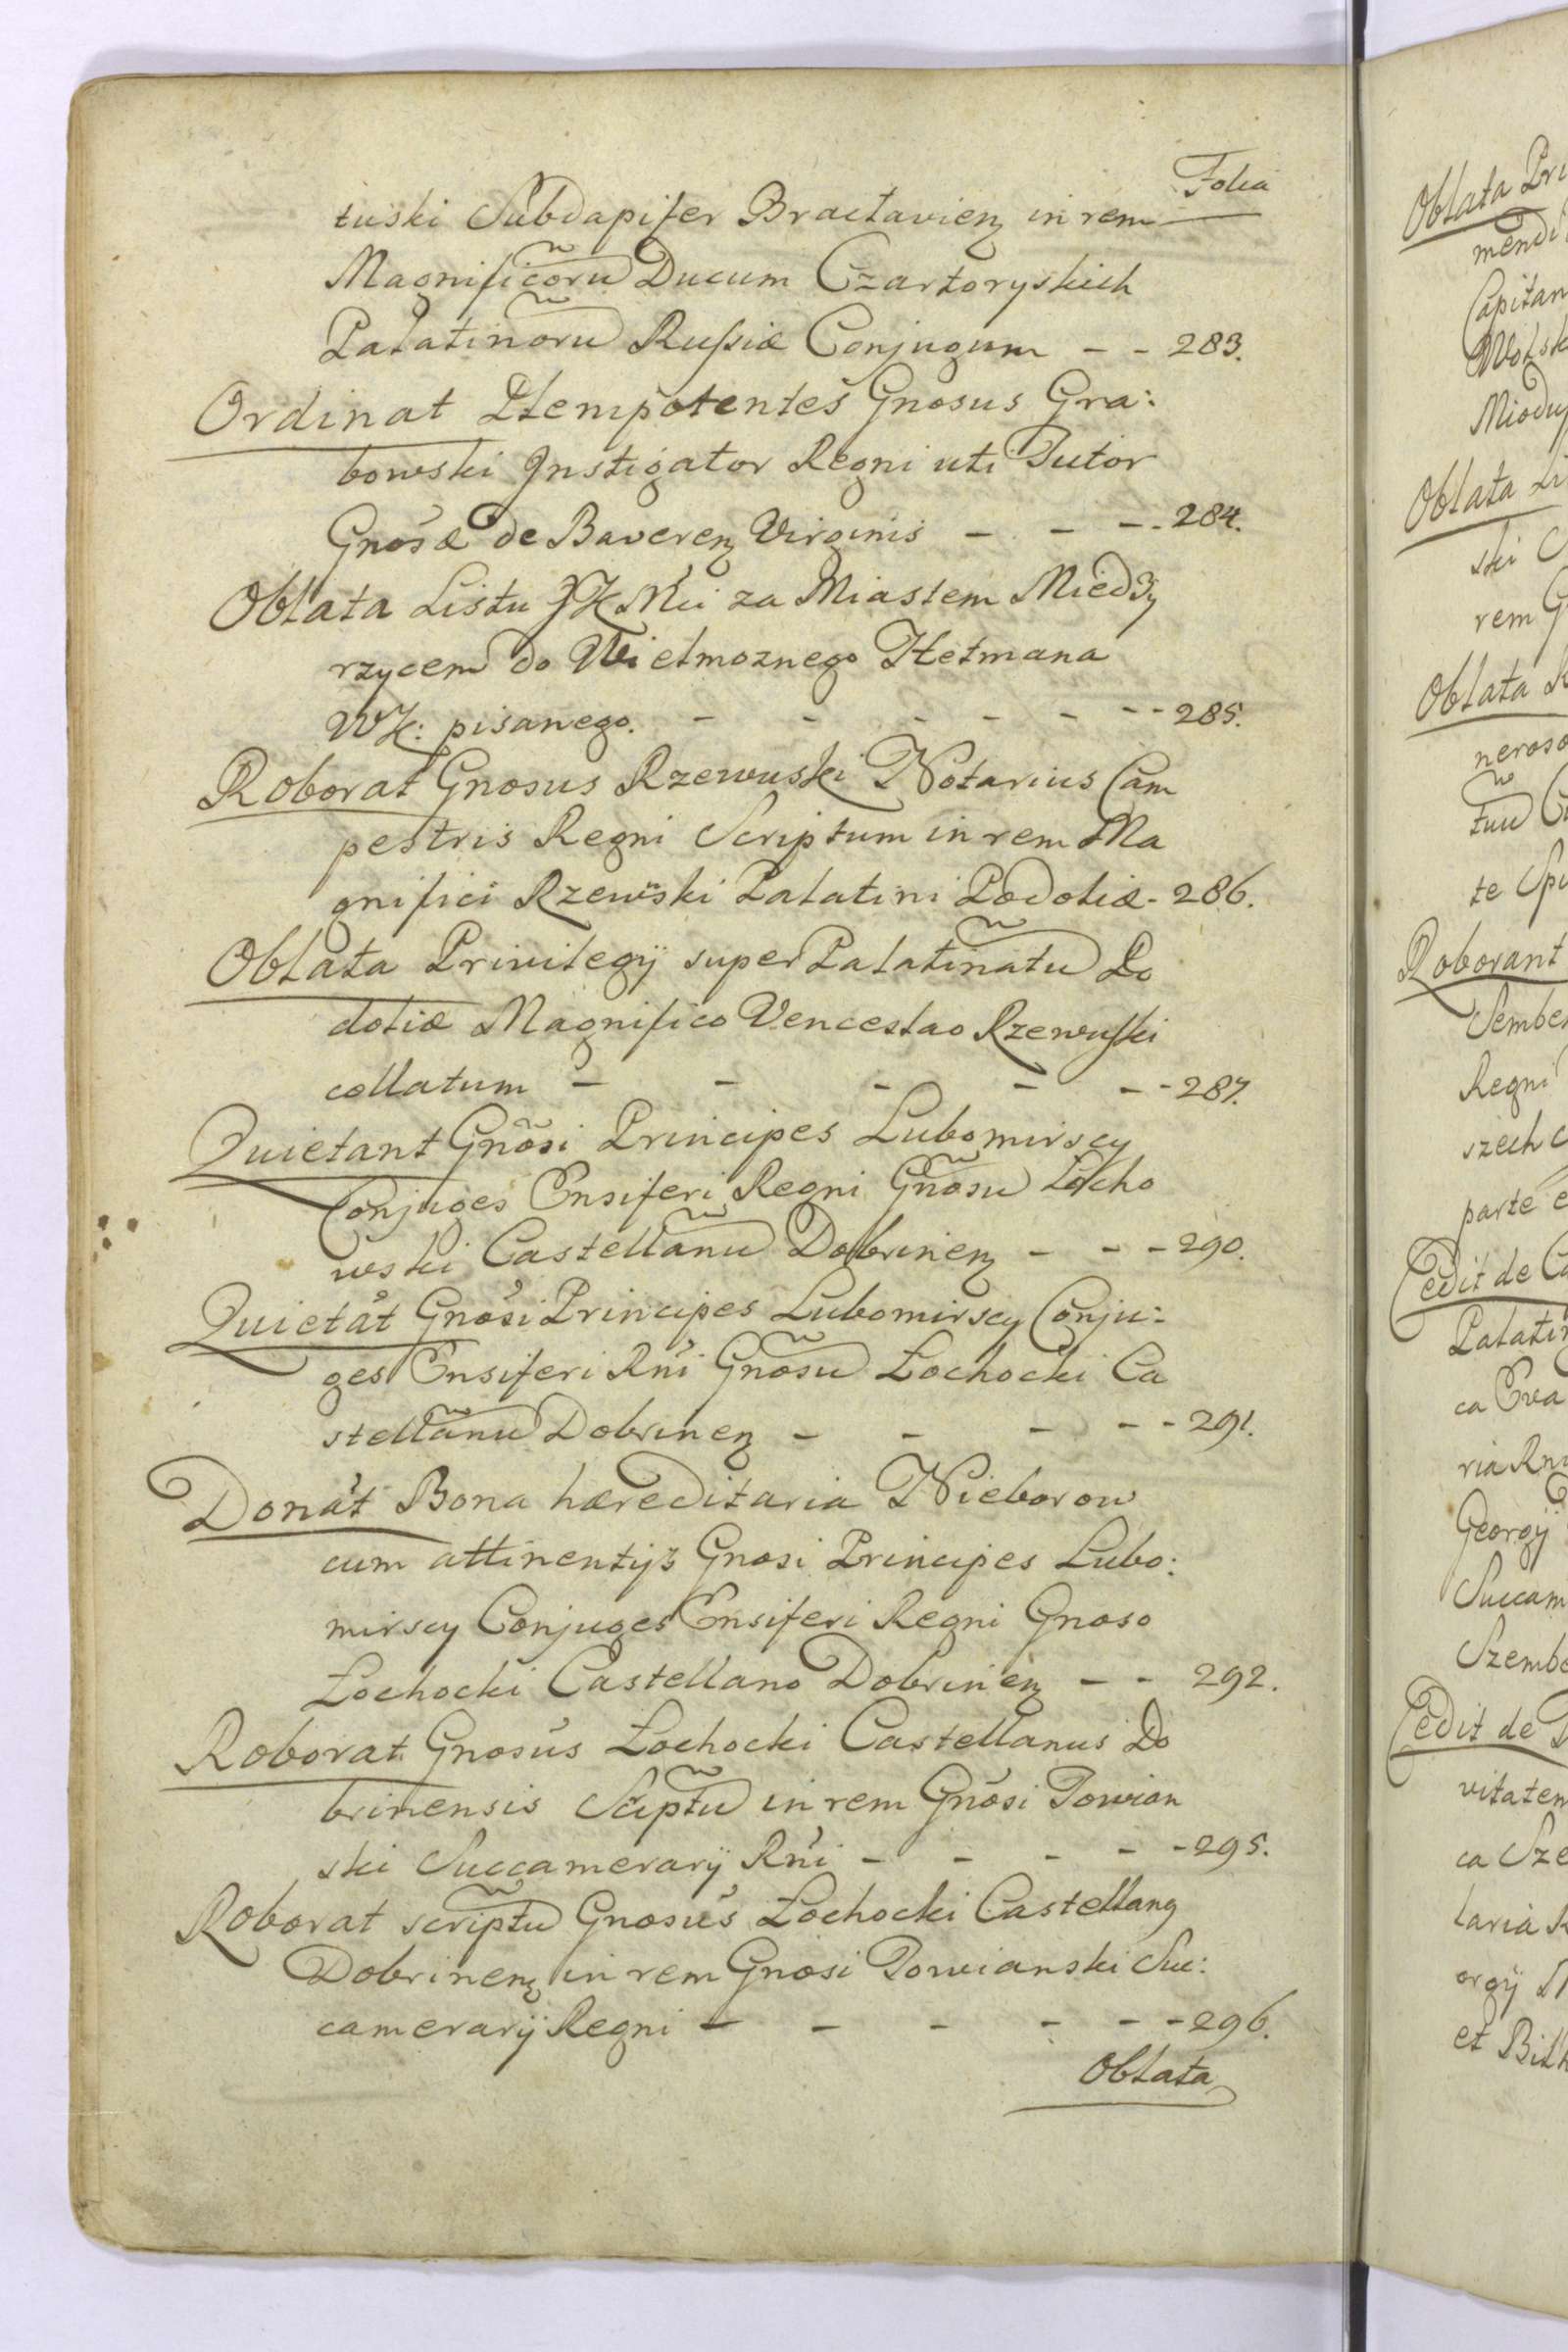 Folia
tuski Subdapifer Bractavienȝ in rem
Magnificorũ Ducum Czartoryskich
Palatinorũ Russiæ Conjugum - - 283.
Ordinat Plenipotentes Gnosus Gra:
bowski Instigator Regni uti Tutor
Gnosæ de Baverenȝ Virginis - - - 284.
Oblata Listu JKMci za Miastem Miedzy
rzycem do Wielmoznego Hetmana
WK: pisanego. - - - - - - - 285.
Roborat Gnosus Rzewuski Notarius Cam
pestris Regni Scriptum in rem Ma
gnifici Rzewuski Palatini Podoliæ - 286.
Oblata Privilegij super Palatinatũ Po
doliæ Magnifico Venceslao Rzewuski
collatum - - - - - - 287.
Quietant Gnõsi Principes Lubomirscy
Conjuges Ensiferi Regni Gnosũ Łocho
wski Castellanũ Dobrinenȝ - - - 290.
Quietat Gnosi Principes Lubomirscy Conju:
ges Ensiferi Rni Gnosũ Łochocki Ca
stellanũ Dobrinenȝ - - - - - 291.
Donat Bona hæreditaria Nieborow
cum attinentijs Gnosi Principes Lubo:
mirscy Conjuges Ensiferi Regni Gnoso
Łochocki Castellano Dobrinenȝ - - 292.
Roborat Gnosus Łochocki Castellanus Do
brinensis Scriptũ in rem Gnosi Powian
ski Succamerarij Rni - - - - - 295.
Roborat scriptũ Gnosus Łochocki Castellanꝯ
Dobrinenȝ in rem Gnosi Powianski Suc:
camerarij Regni - - - - - - 296.
Oblata
Oblata Pri
mendi
Capitan
Wolsk
Oblata Li
ski C
rem G
Oblata
neroso
te Spi
Roborant
Sembe
Regni
szech
parte e
Cedit de Ca
Palatin
ca Eva
ria Rni
Georgij
Succam
Szembe
Cedit de
vitatem
ca Sze
laria R
orgij
et Bilh